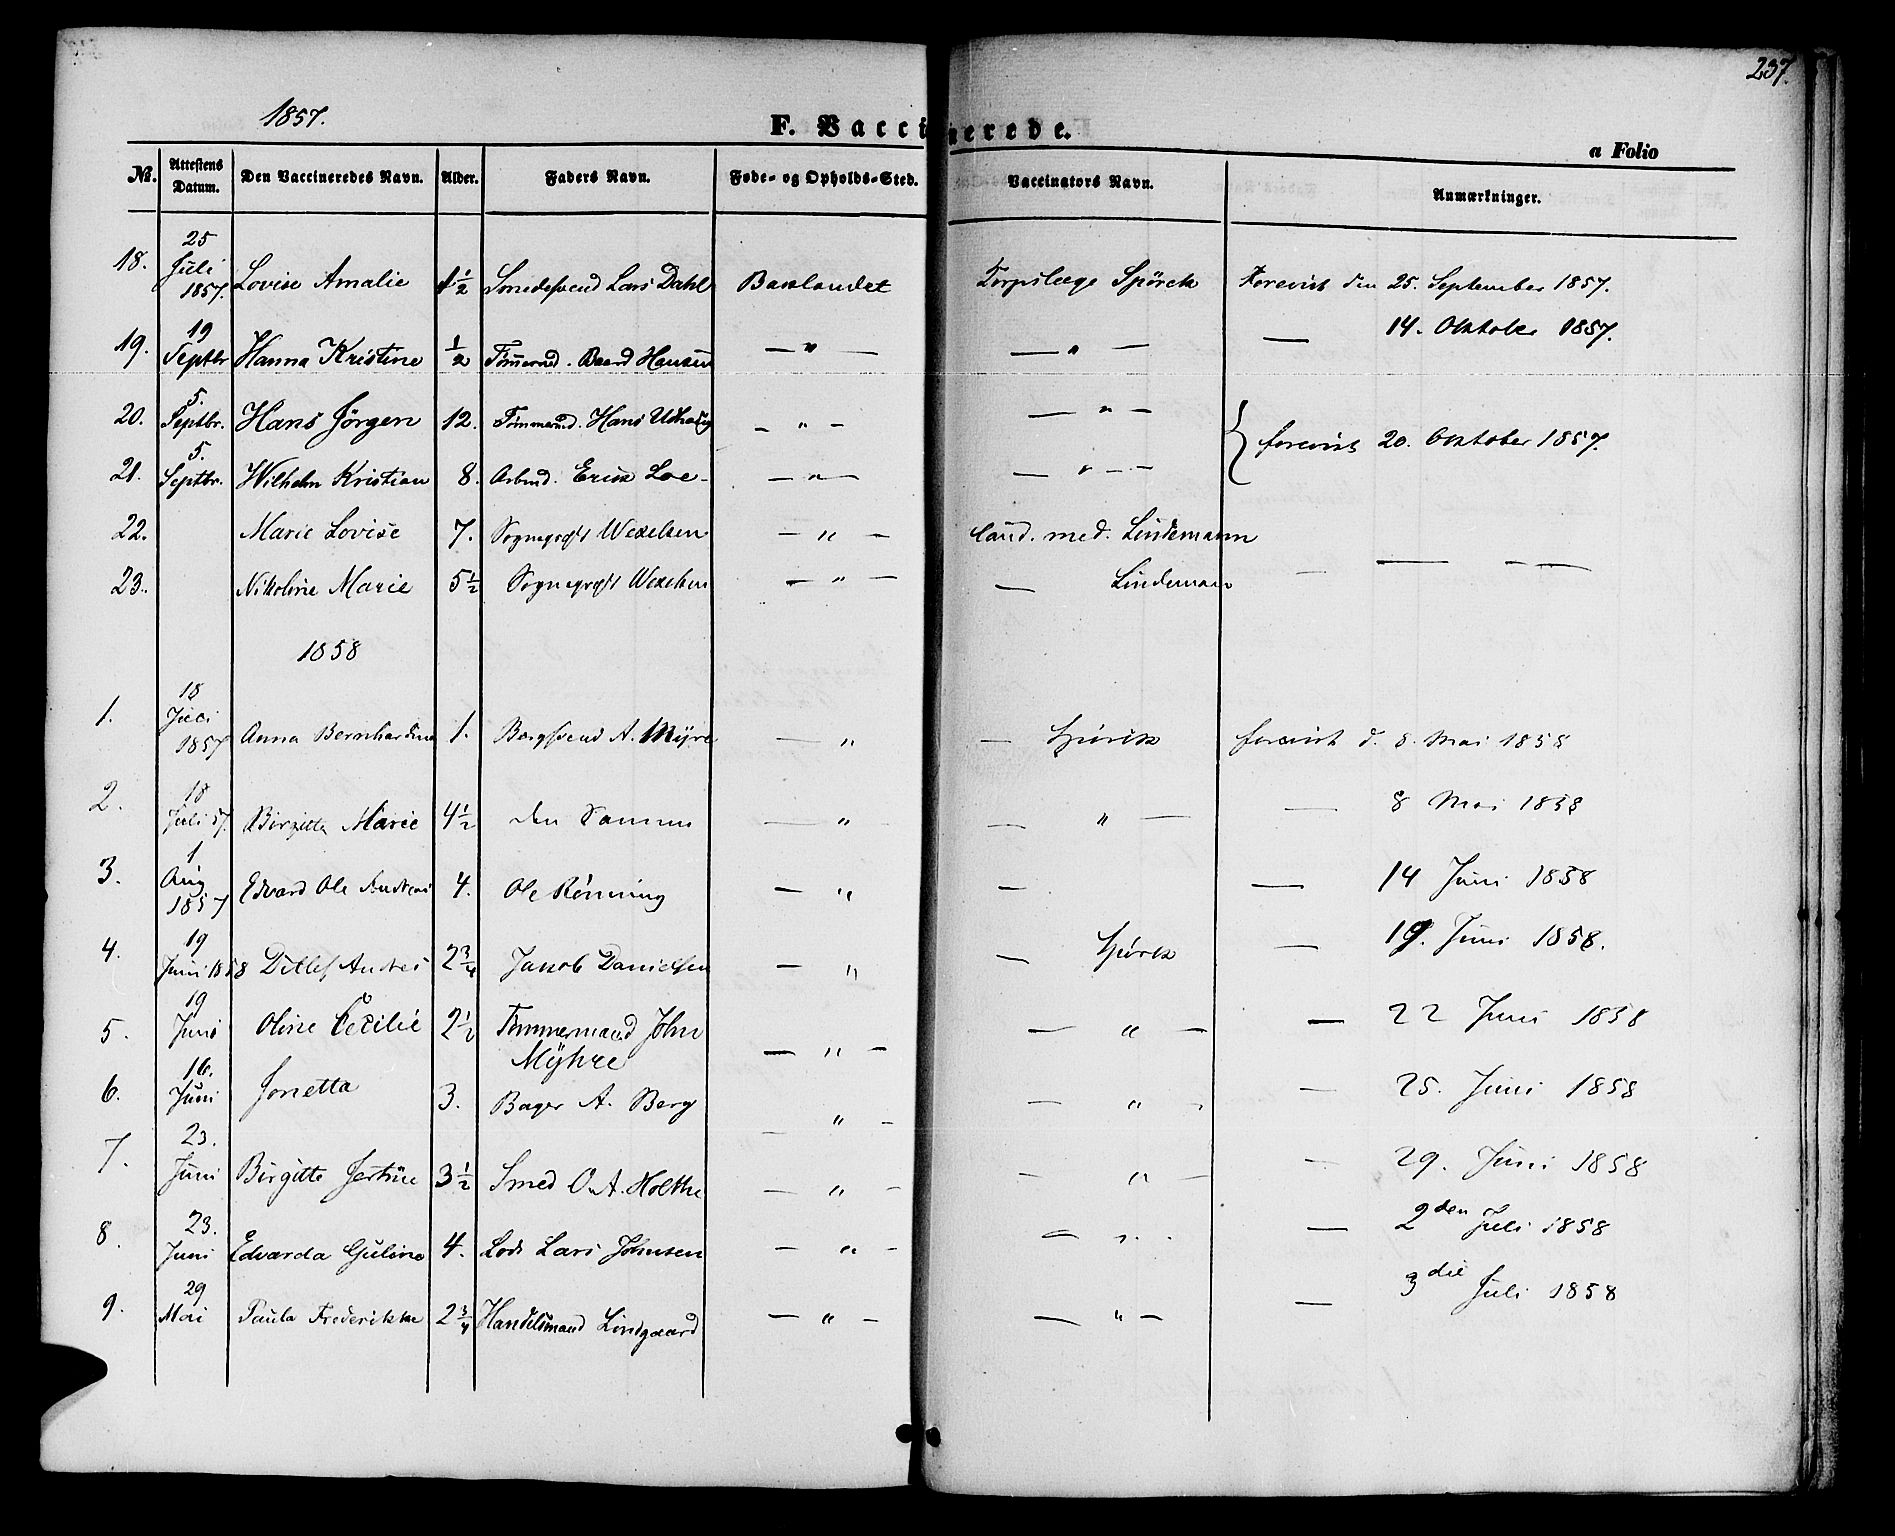 237.
1857.
F. Vaccinerede.
a Folio
No. Attestens Datum. Den Vaccineredes Navn. Alder. Faders Navn. Føde- og Opholds-Sted. Vaccinators Navn. Anmærkninger.
18. 25 Juli 1857. Lovise Amalie 1½ Lars Dahl Baklandet Spörck Forevist den 25. September 1857.
19. 19 Septbr Hanna Kristine ½ Baard Hansen — " — — " — — 14. Oktober 1857.
20. 5. Septbr. Hans Jörgen 12. Hans — " — — " —
forevist 20. Oktober 1857.
21. 5. Septbr. Wilhelm Kristian 8. Arbmd. Erik Loe — " — — " — —
22. Marie Lovise 7. Wexelsen — " — Cand. med. Lindemann
23. Nikoline Marie 5½ Wexelsen — " — — Lindeman — — — —
1858
1. 18 Juli 1857 Anna Bernhardine 1. A. Myre — " — Spörck forevist d. 8. Mai 1858
2. 18 Juli 57. Birgitte Marie 4½ den Samme — " — " — — 8 Mai 1858
3. 1 Aug 1857 Edvard Ole Andreas 4. Ole Rönning — " — — 14 Juni 1858
4. 19 Juni 1858 Ditlef Andrei 2¾ Jakob Danielsen — " — Spörck — 19. Juni 1858.
5. 19 Juni Oline Cecilie 2½ Tömmermand John
Myhre — " — — " — — 22 Juni 1858
6. 16. Juni Jonetta 3. Bager A. Berg — " — — " — — 25. Juni 1858
7. 23. Juni Birgitte 3½ Smed O. A. Holthe — " — — " — — 29. Juni 1858
8. 23. Juni Edvarda Guline 4. Lods Lars Johnsen — " — — " — — 2den Juli 1858
9. 29 Mai Paula Frederikke 2¾ Handelsmand Lindgaard — " — — " — — 3die Juli 1858